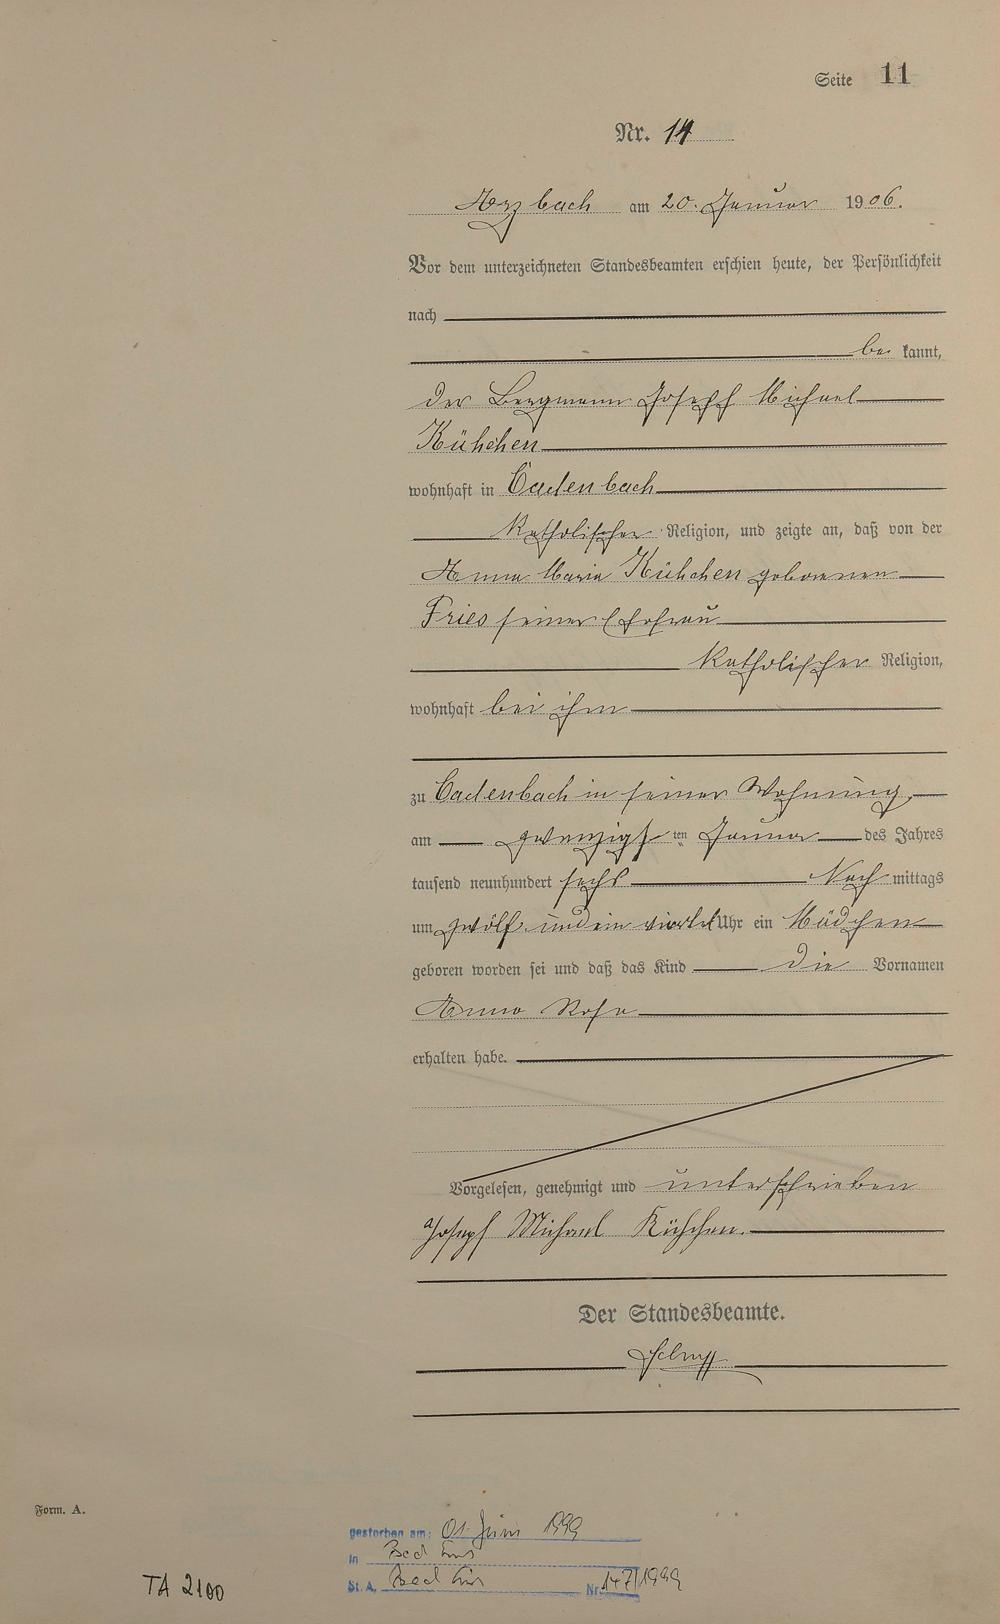 Seite 11
Nr. 14
Arzbach am 20. Januar 1906.
Vor dem unterzeichneten Standesbeamten erschien heute, der Persönlichkeit
nach
be kannt,
der Bergmann Joseph Michael
Kühchen
wohnhaft in Cadenbach
katholischer Religion, und zeigte an, daß von der
Anna Maria Kühchen geborenen
Fries seiner Ehefrau
katholischer Religion,
wohnhaft bei ihm
zu Cadenbach in seiner Wohnung,
am zwanzigsten Januar des Jahres
tausend neunhundert sechs Nach mittags
um zwölf und ein viertel Uhr ein Mädchen
geboren worden sei und daß das Kind die Vornamen
Anna Rosa
erhalten habe.
Vorgelesen, genehmigt und unterschrieben
Joseph Michael Kühchen.
Der Standesbeamte.
Form. A.
gestorben am: 01. Juni 1999
in Bad Ems
St. A. Bad Ems Nr. 147/1999
TA 2100